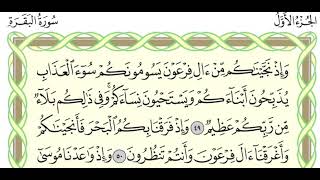 الجُزْءُ الأَوَّلُ
سُورَةُ البَقَرَةِ
وَإِذْ نَجَّيْنَٰكُم مِّنْ ءَالِ فِرْعَوْنَ يَسُومُونَكُمْ سُوٓءَ ٱلْعَذَابِ
يُذَبِّحُونَ أَبْنَآءَكُمْ وَيَسْتَحْيُونَ نِسَآءَكُمْ ۚ وَفِى ذَٰلِكُم بَلَآءٌ
مِّن رَّبِّكُمْ عَظِيمٌ ٤٩ وَإِذْ فَرَقْنَا بِكُمُ ٱلْبَحْرَ فَأَنجَيْنَٰكُمْ
وَأَغْرَقْنَآ ءَالَ فِرْعَوْنَ وَأَنتُمْ تَنظُرُونَ ٥٠ وَإِذْ وَٰعَدْنَا مُوسَىٰٓ